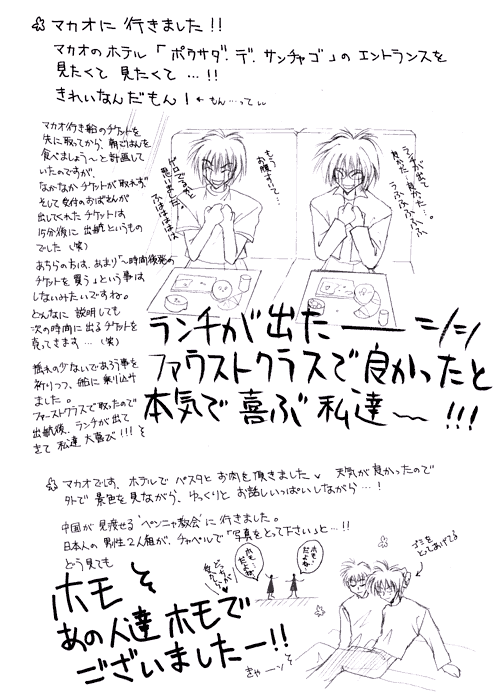 マカオに行きました!!
マカオのホテル「ポウサダ・デ・サンチャゴ」のエントランスを
見たくて見たくて…!!
きれいなんだもん! ←もん…って
マカオ行き船のチケットを
先に取ってから、朝ごはんを
食べましょう〜と計画して
いたのですが、
なかなかチケットが取れず
そして受付のおばさんが
出してくれたチケットは
15分後に出航というもの
でした(笑)
あちらの方は、あまり「〜時間後発の
チケットを買う」という事は
しないみたいですね。
どんなに説明しても
次の時間に出るチケットを
売ってきます…(笑)
揺れの少ないであろう事を
祈りつつ、船に乗り込み
ました。
ファーストクラスで取ったので
出航後、ランチが出て
きて私達大喜び!!!
もう
お腹すいて…
ふはははははは
ランチが出て
良かった…
うふふふふふ
ランチが出たーー
ファウストクラスで良かったと
本気で喜ぶ私達〜!!!
マカオでは、ホテルでパスタとお肉を頂きました 天気が良かったので
外で景色を見ながら、ゆっくりとお話しいっぱいしながら…!
中国が見渡せる"ペンニャ教会"に行きました。
日本人の男性2人組が、チャペルで「写真をとって下さい」と…!!
どう見ても
ホモ
あの人達ホモで
ございましたー!!
ホモ
だよな!
ホモ
だよね
きゃーン
ゴミを
とってあげてる